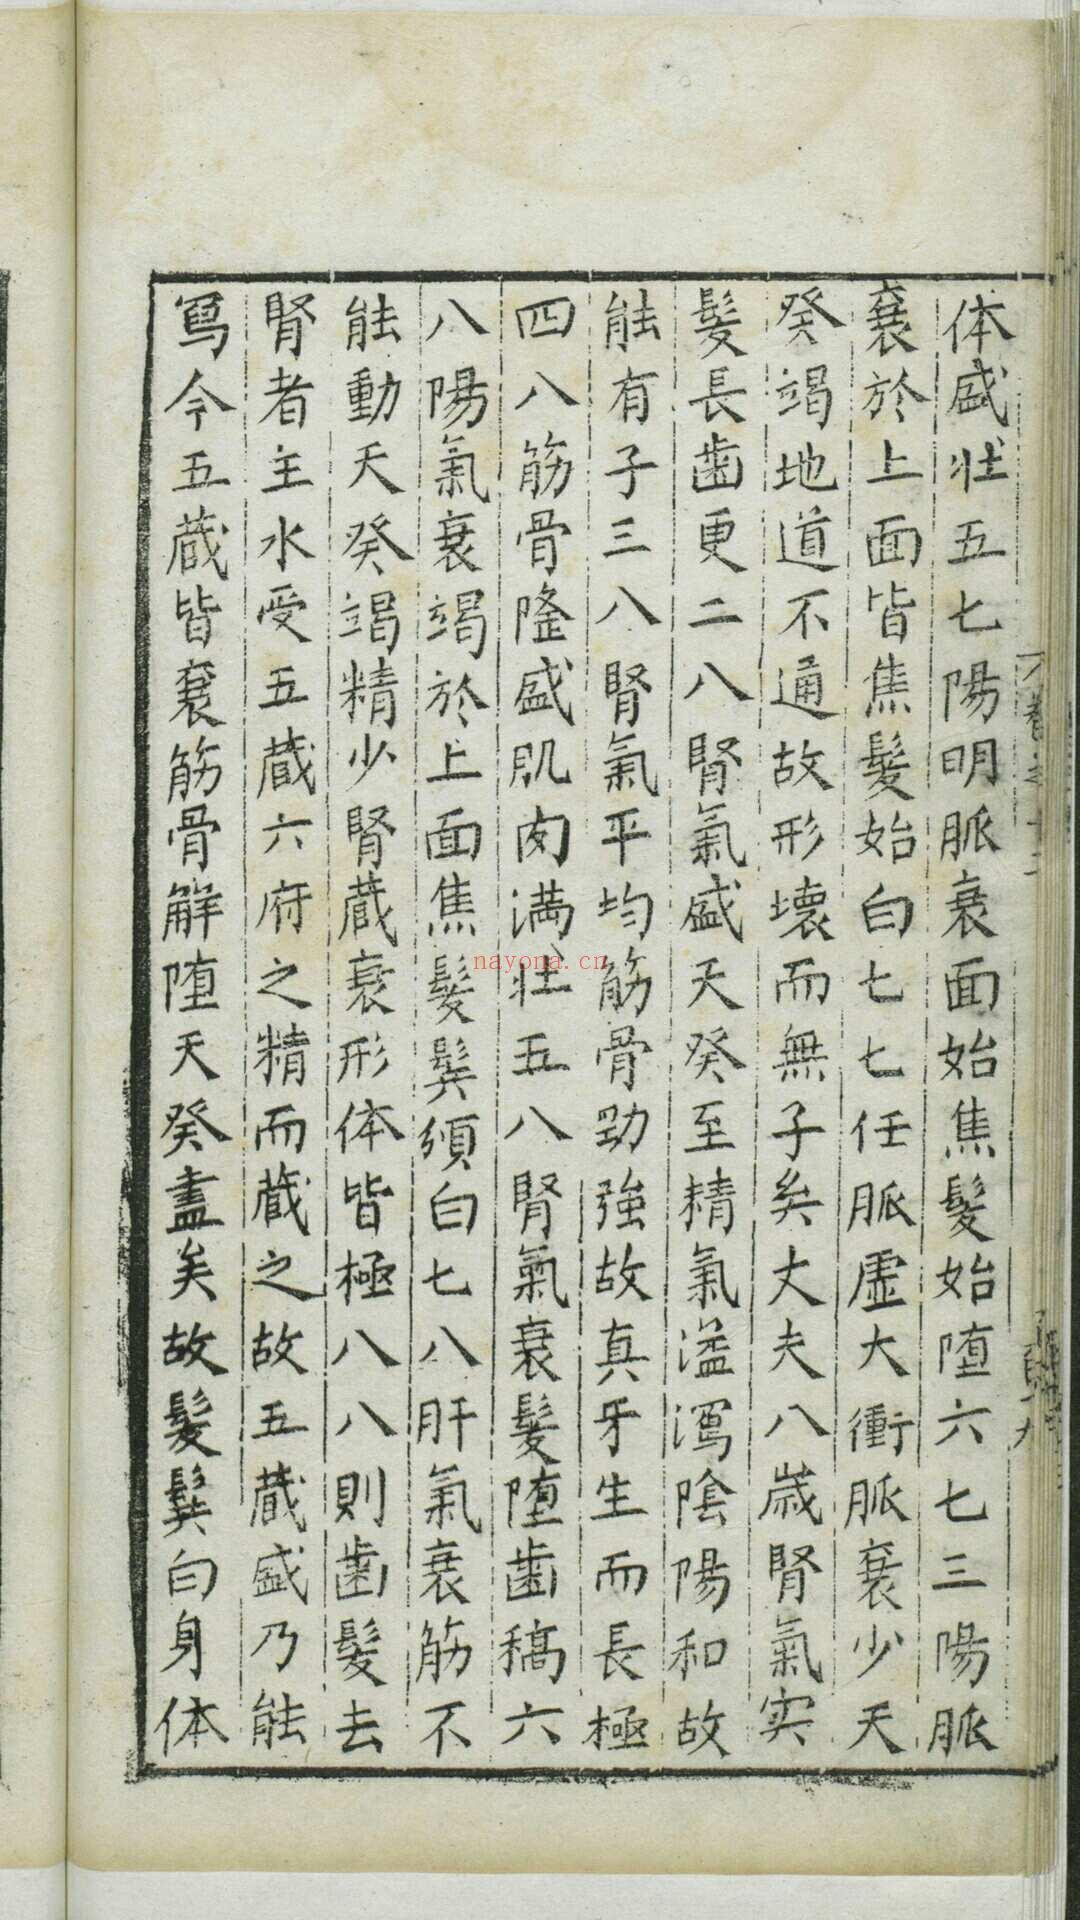 体盛壮五七陽明脈衰面始焦髮始堕六七三陽脈
衰於上面皆焦髮始白七七任脈虚大衝脈衰少天
癸竭地道不通故形壊而無子矣丈夫八歳腎氣实
髮長歯更二八腎氣盛天癸至精氣溢瀉陰陽和故
能有子三八腎氣平均筋骨勁強故真牙生而長極
四八筋骨隆盛肌肉満壮五八腎氣衰髮堕歯槁六
八陽氣衰竭於上面焦髮鬂頒白七八肝氣衰筋不
能動天癸竭精少腎蔵衰形体皆極八八則歯髮去
腎者主水受五蔵六府之精而蔵之故五蔵盛乃能
寫今五蔵皆衰筋骨解堕天癸盡矣故髮鬂白身体
nayona.cn